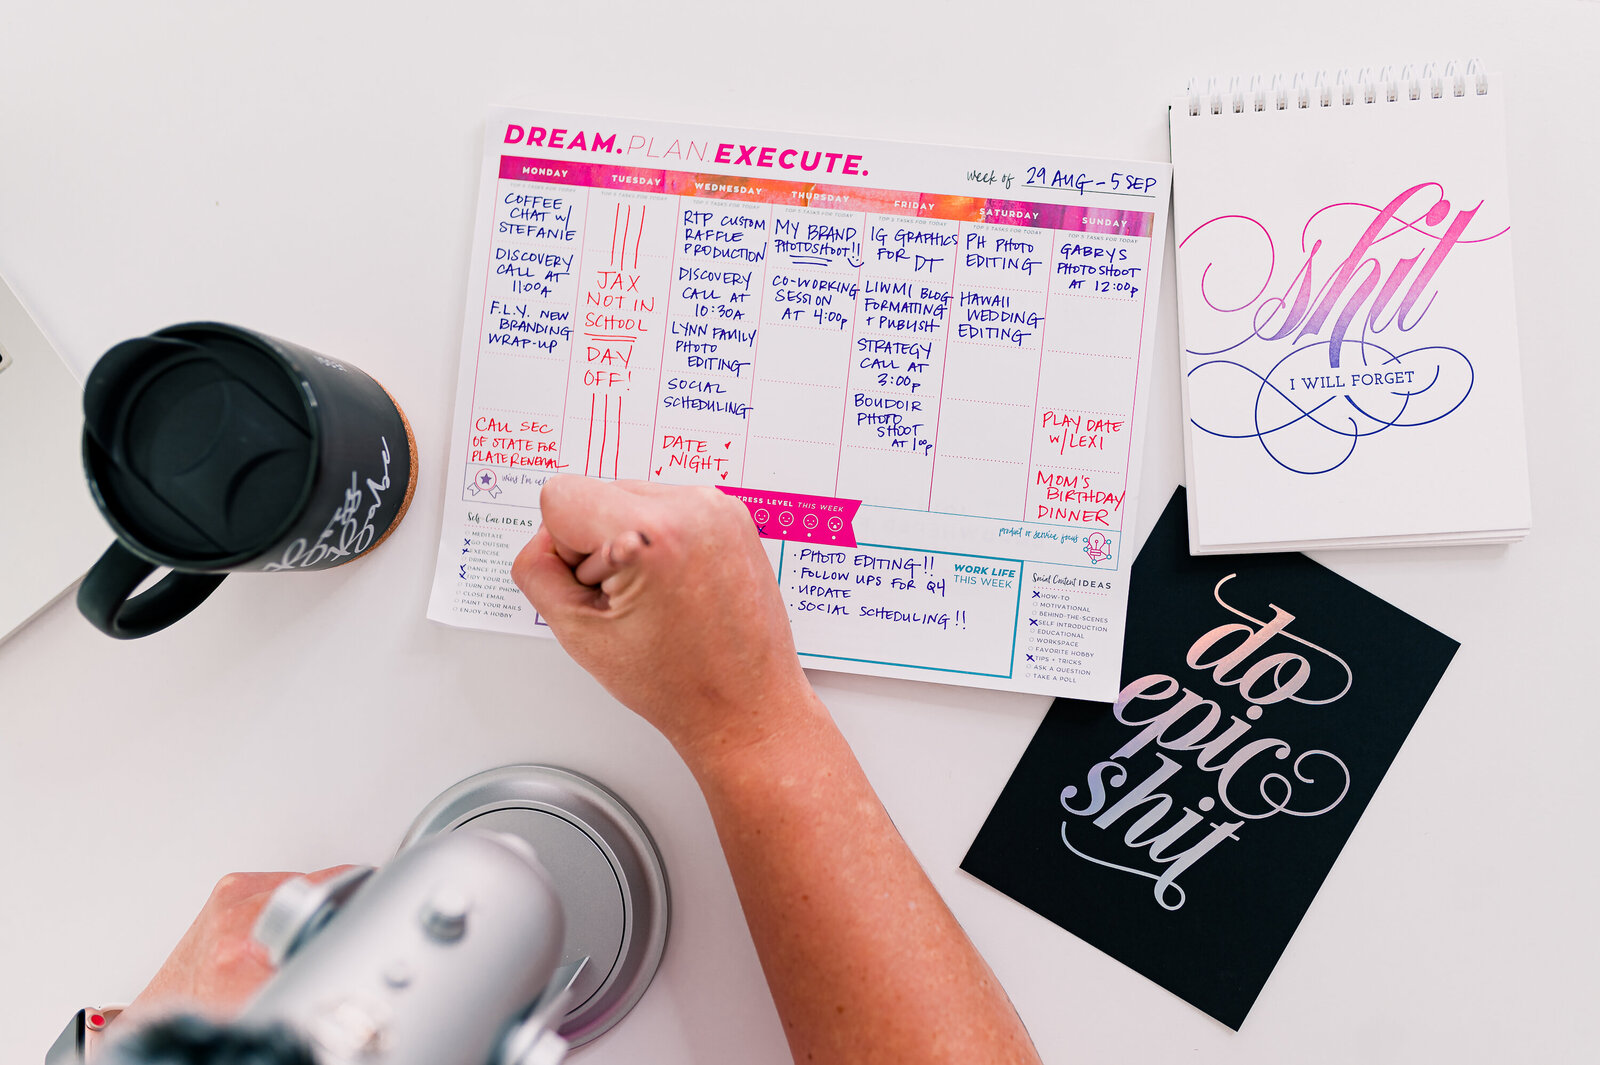 DREAM.PLAN.EXECUTE.
week of 29 AUG - 5 SEP
MONDAY
TOP 5 TASKS FOR TODAY
COFFEE
CHAT W/
STEFANIE
DISCOVERY
CALL AT
11:00A
F.L.Y. NEW
BRANDING
WRAP-UP
CALL SEC
OF STATE FOR
PLATE RENEWAL
TUESDAY
TOP 5 TASKS FOR TODAY
JAX
NOT IN
SCHOOL
DAY
OFF!
WEDNESDAY
TOP 5 TASKS FOR TODAY
RTP CUSTOM
RAFFLE
PRODUCTION
DISCOVERY
CALL AT
10:30A
LYNN FAMILY
PHOTO
EDITING
SOCIAL
SCHEDULING
DATE
NIGHT
THURSDAY
TOP 5 TASKS FOR TODAY
MY BRAND
PHOTOSHOOT!!
CO-WORKING
SESSION
AT 4:00P
FRIDAY
TOP 5 TASKS FOR TODAY
IG GRAPHICS
FOR DT
LIWMI BLOG
FORMATTING
+ PUBLISH
STRATEGY
CALL AT
3:00P
BOUDOIR
PHOTO
SHOOT
AT 1:00P
SATURDAY
TOP 5 TASKS FOR TODAY
PH PHOTO
EDITING
HAWAII
WEDDING
EDITING
SUNDAY
TOP 5 TASKS FOR TODAY
GABRYS
PHOTOSHOOT
AT 12:00P
PLAY DATE
W/LEXI
MOM'S
BIRTHDAY
DINNER
wins I'm
STRESS LEVEL THIS WEEK
product or service focus
Self-Care IDEAS
MEDITATE
GO OUTSIDE
EXERCISE
DRINK WATER
DANCE IT OUT
TURN OFF PHONE
CLOSE EMAIL
PAINT YOUR NAILS
ENJOY A HOBBY
WORK LIFE
THIS WEEK
· PHOTO EDITING!!
· FOLLOW UPS FOR Q4
· UPDATE
· SOCIAL SCHEDULING!!
Social Content IDEAS
HOW-TO
MOTIVATIONAL
BEHIND-THE-SCENES
SELF INTRODUCTION
EDUCATIONAL
WORKSPACE
FAVORITE HOBBY
TIPS + TRICKS
ASK A QUESTION
TAKE A POLL
shit
I WILL FORGET
do
epic
shit
babe